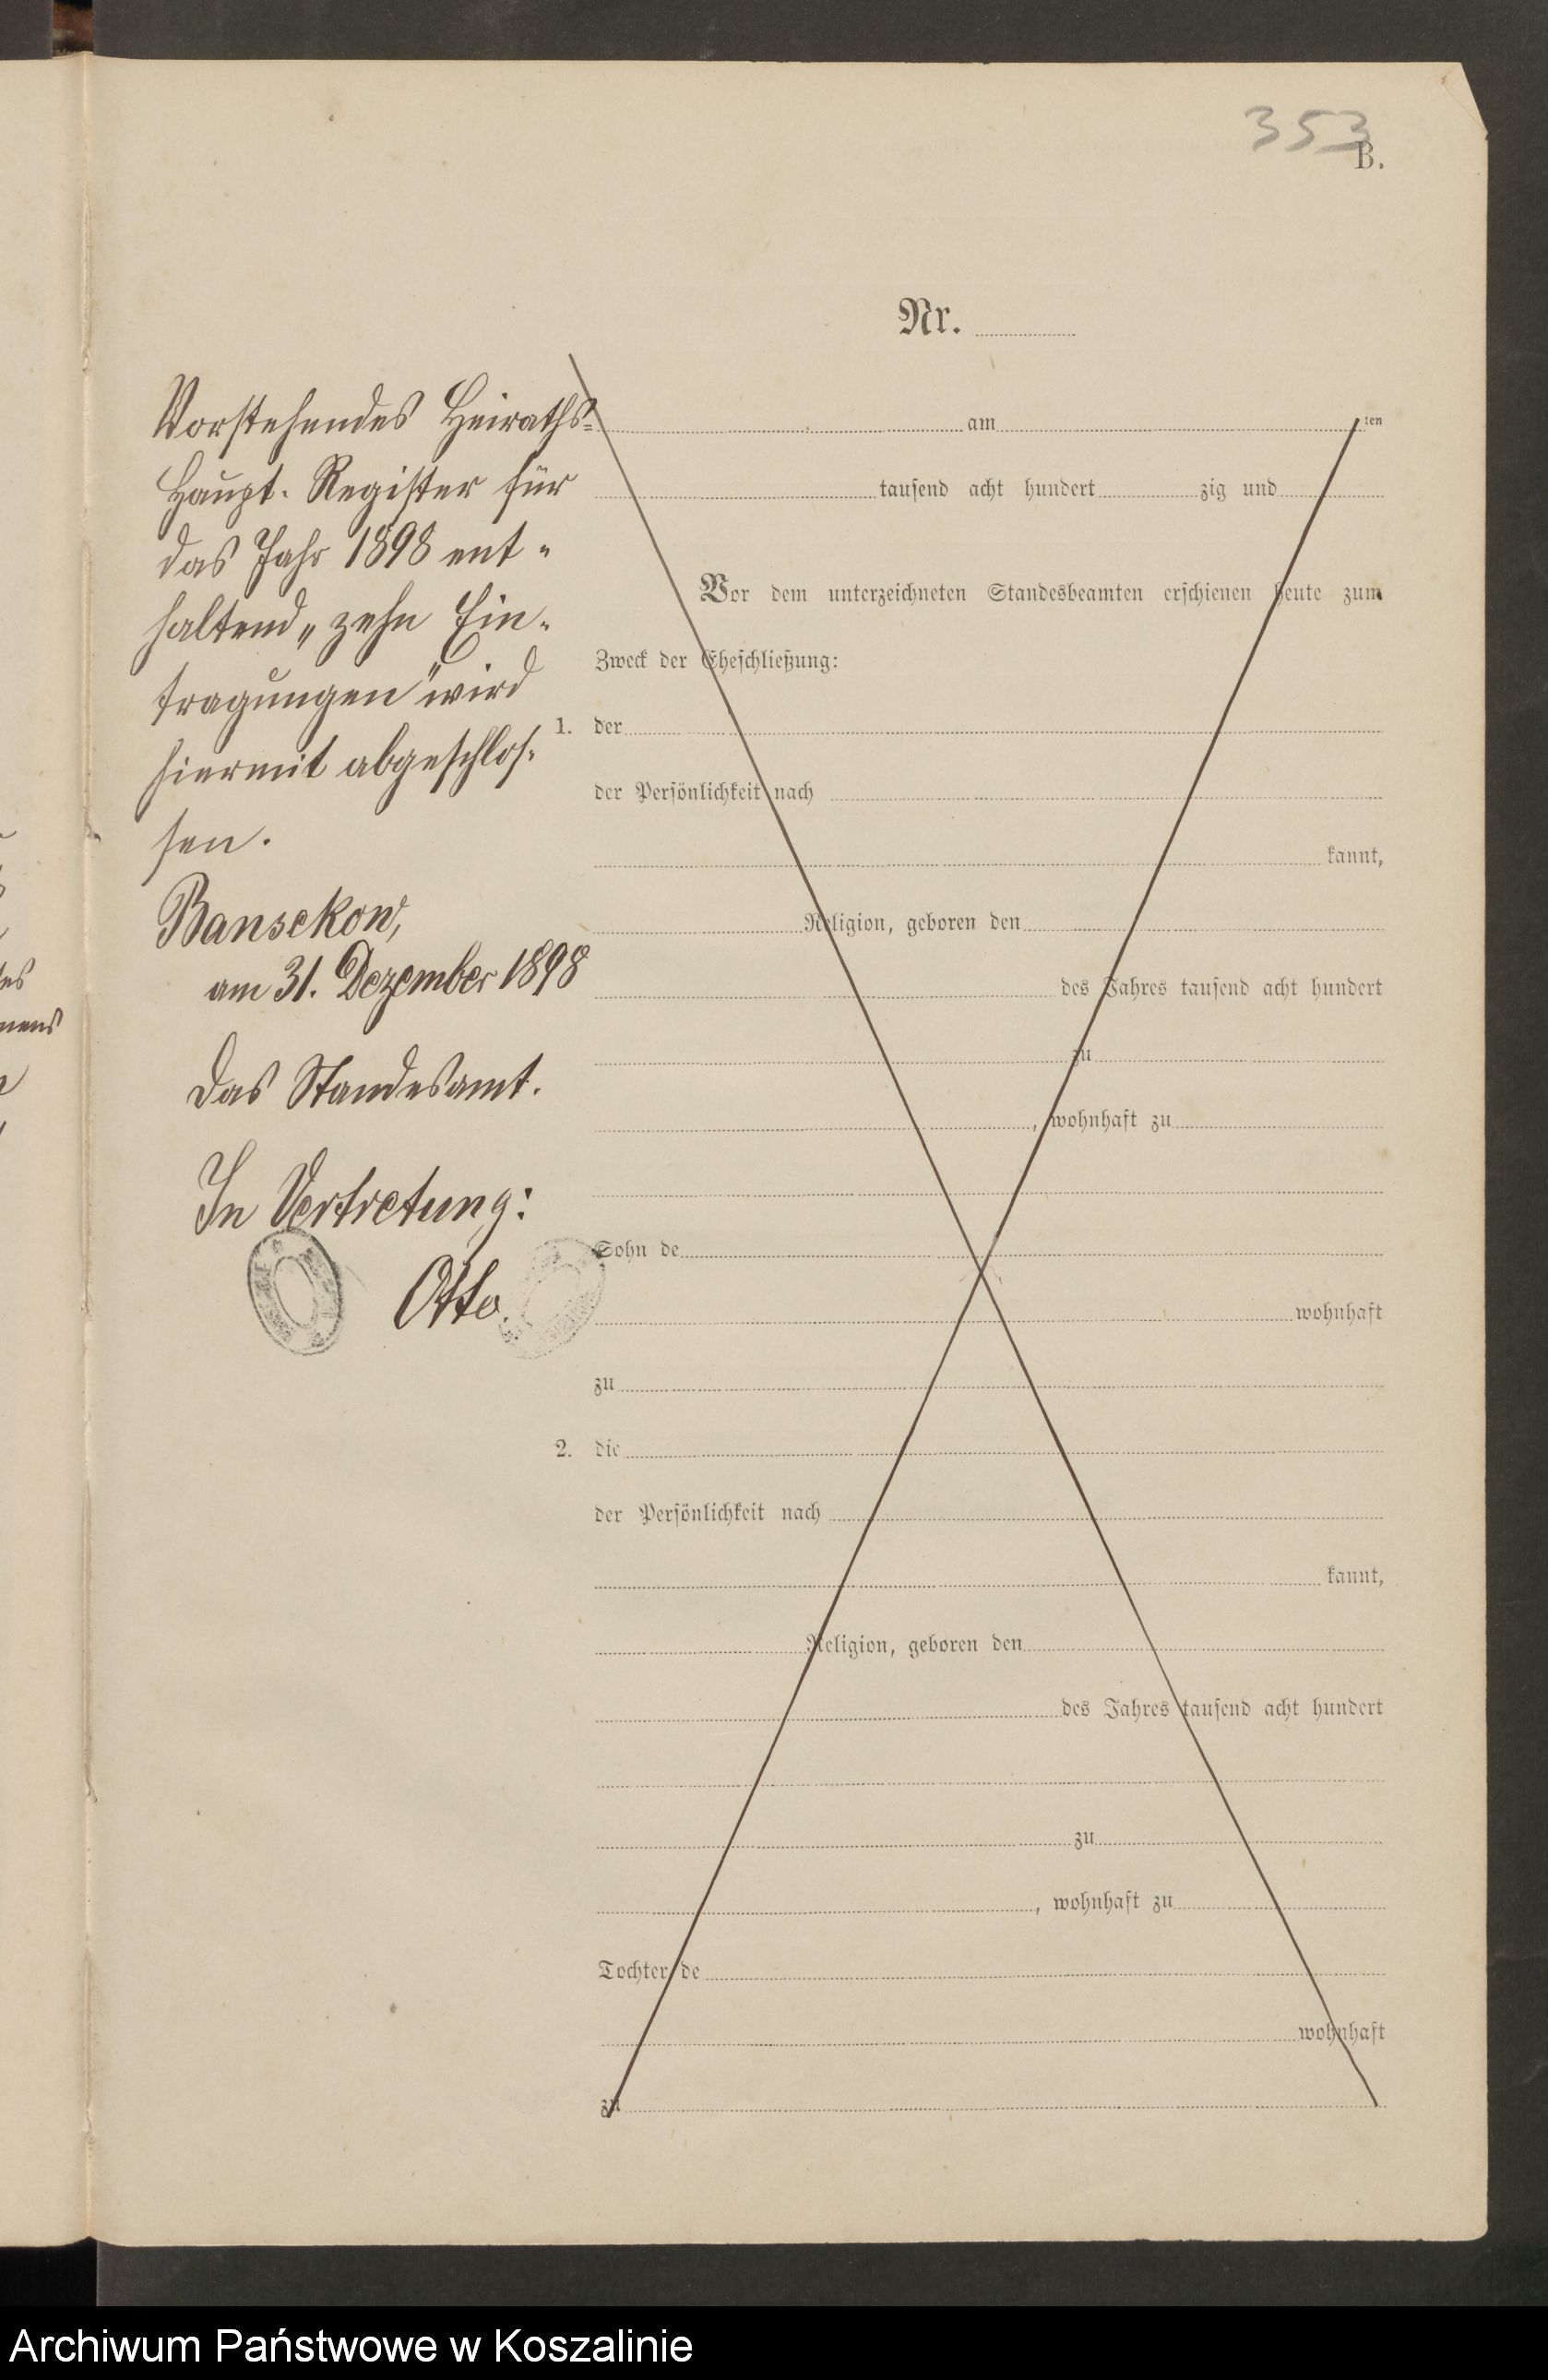 353
B.
Nr.
Vorstehendes Heiraths-
Haupt-Register für
das Jahr 1898 ent-
haltend „zehn Ein-
tragungen" wird
hiermit abgeschlos-
sen.
Bansekow,
am 31. Dezember 1898
Das Standesamt.
In Vertretung:
Otto.
am ten
tausend acht hundert zig und
Vor dem unterzeichneten Standesbeamten erschienen heute zum
Zweck der Eheschließung:
1. der
der Persönlichkeit nach
kannt,
Religion, geboren den
des Jahres tausend acht hundert
zu
, wohnhaft zu
Sohn de
wohnhaft
zu
2. die
der Persönlichkeit nach
kannt,
Religion, geboren den
des Jahres tausend acht hundert
zu
, wohnhaft zu
Tochter de
wohnhaft
zu
Archiwum Państwowe w Koszalinie